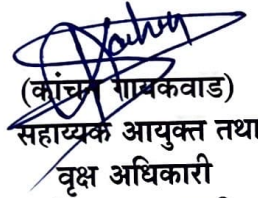 (कांचन गायकवाड)
सहाय्यक आयुक्त तथा
वृक्ष अधिकारी